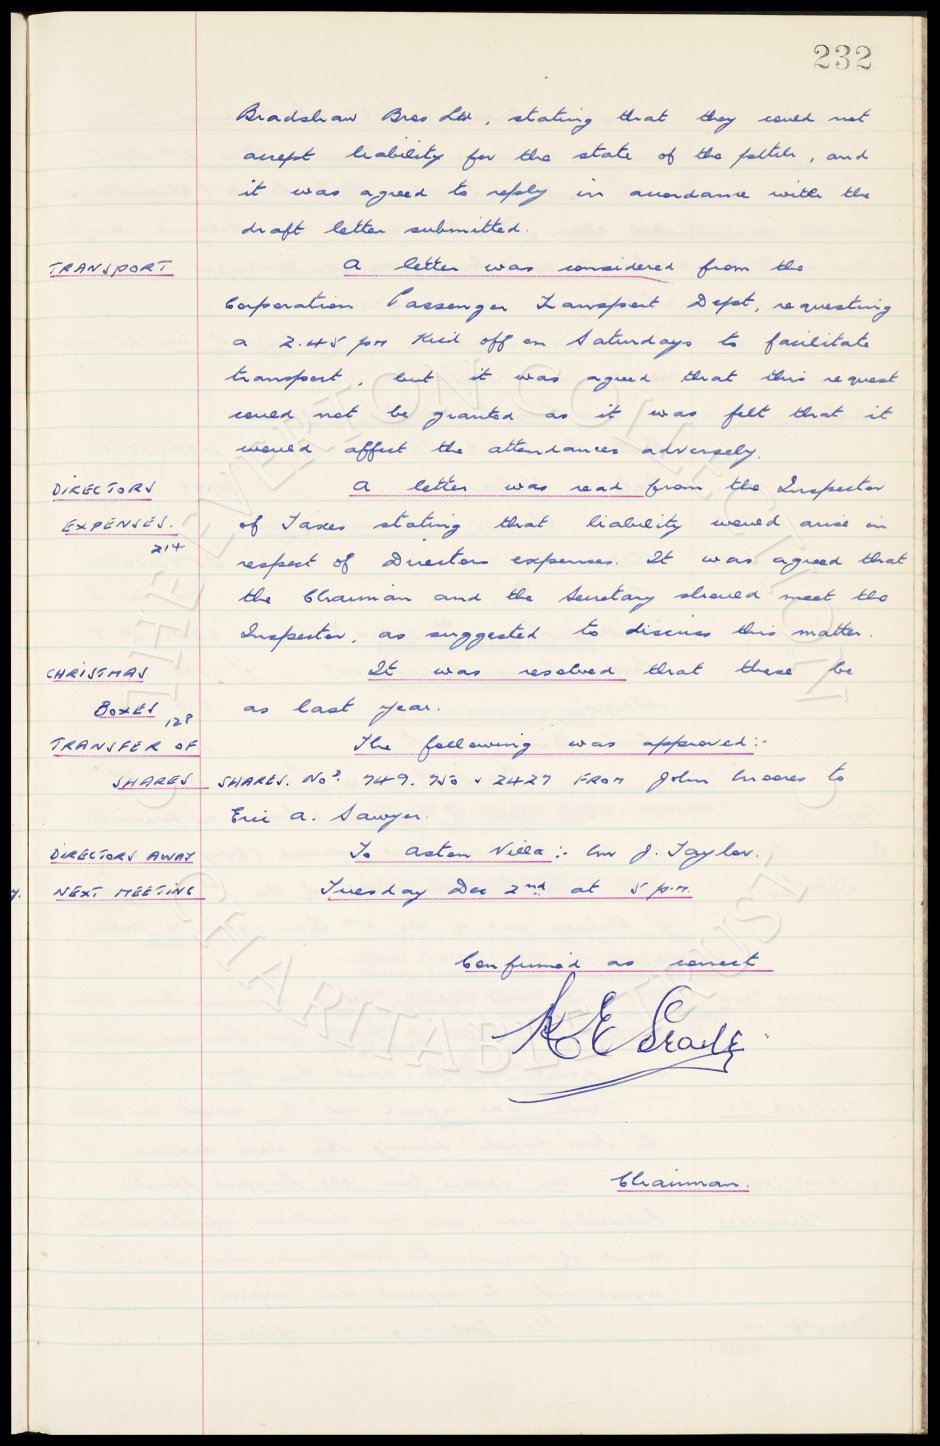 232
Bradshaw Bros Ltd, stating that they could not
accept liability for the state of the pitch, and
it was agreed to reply in accordance with the
draft letter submitted.
TRANSPORT A letter was considered from the
Corporation Passenger Transport Dept, requesting
a 2.45 pm Kick off on Saturdays to facilitate
transport, but it was agreed that this request
could not be granted as it was felt that it
would affect the attendances adversely.
DIRECTORS A letter was read from the Inspector
EXPENSES. of Taxes stating that liability would arise in
214
respect of Directors expenses. It was agreed that
the Chairman and the Secretary should meet the
Inspector, as suggested to discuss this matter.
CHRISTMAS It was resolved that these be
BOXES 128 as last year.
TRANSFER OF The following was approved:-
SHARES SHARES. Nos. 749. 750 & 2427 FROM John Moores to
Eric A. Sawyer.
DIRECTORS AWAY To Aston Villa:- Mr J. Taylor.
NEXT MEETING Tuesday Dec 2nd at 5 p.m.
Confirmed as correct
Chairman.
THE EVERTON COLLECTION
CHARITABLE TRUST